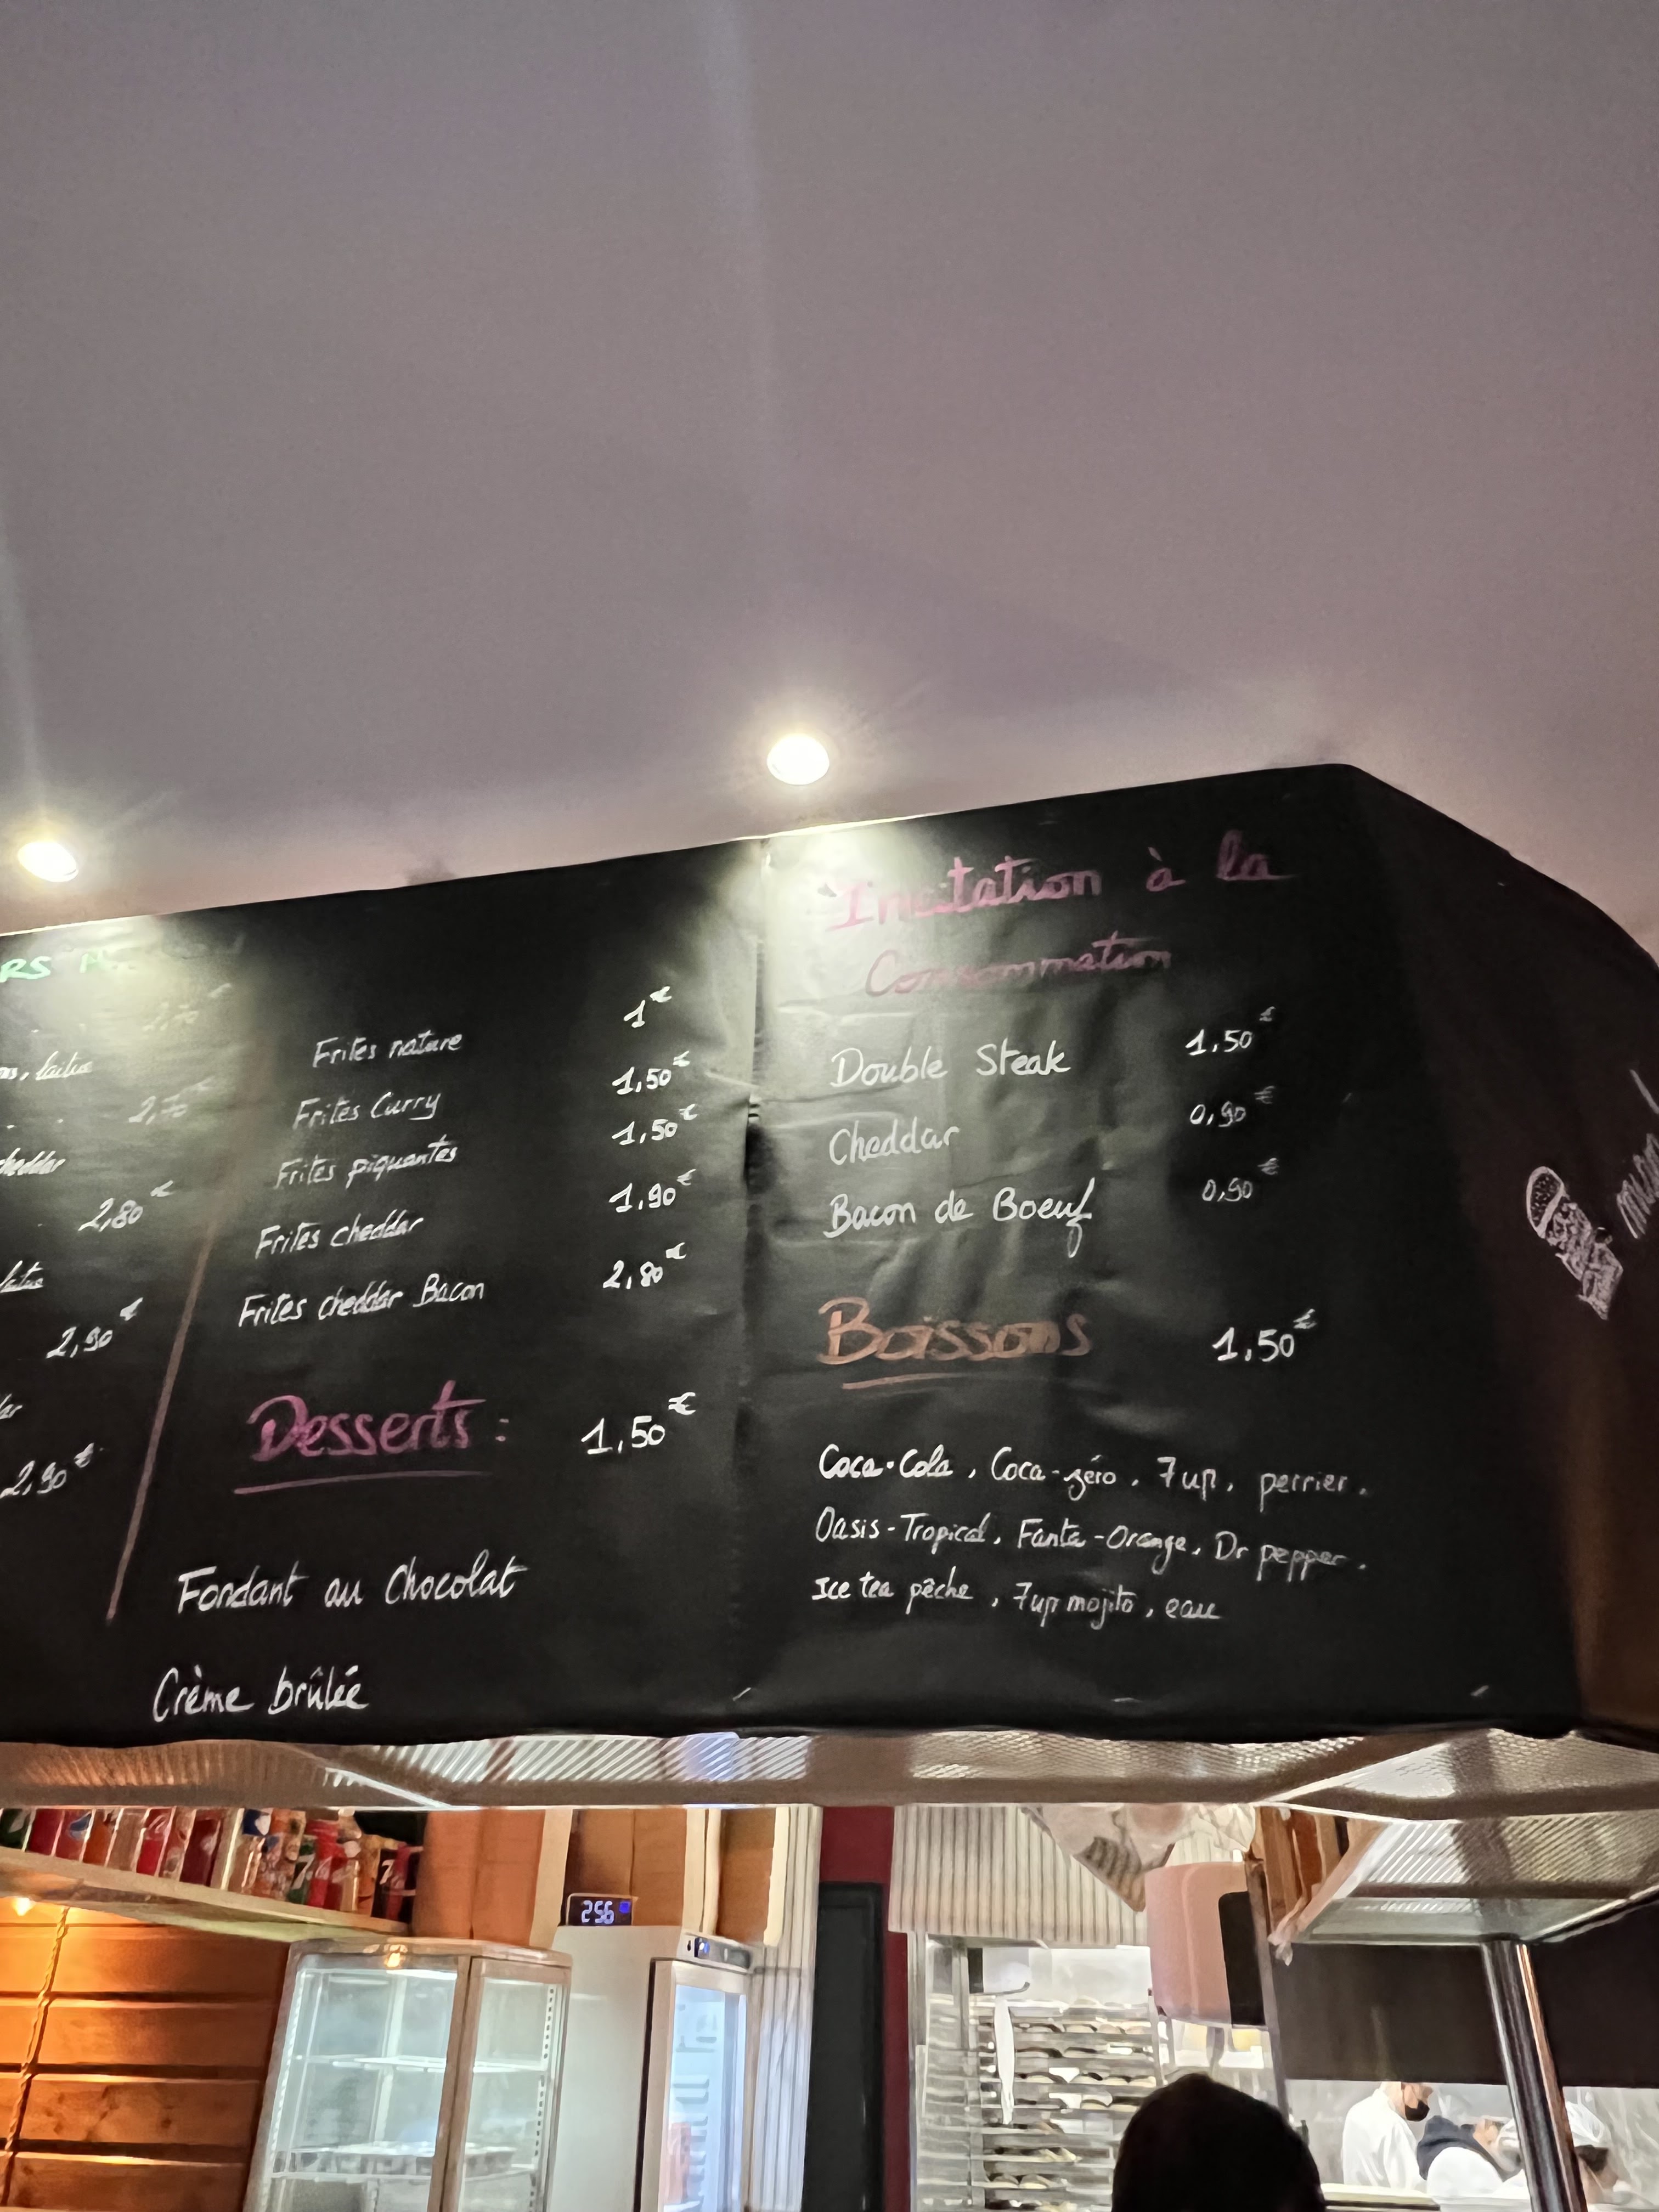 RS
2,70 €
laitue
2,70
cheddar
2,80 €
laitue
2,90 €
2,90 €
Frites nature 1€
Frites Curry 1,50€
Frites piquantes 1,50€
Frites cheddar 1,90€
Frites cheddar Bacon 2,80€
Desserts : 1,50€
Fondant au Chocolat
Crème brûlée
Incitation à la
Consommation
Double Steak 1,50€
Cheddar 0,90€
Bacon de Boeuf 0,90€
Boissons 1,50€
Coca-Cola, Coca-zéro, 7up, perrier.
Oasis-Tropical, Fanta-Orange, Dr pepper.
Ice tea pêche, 7up mojito, eau
256